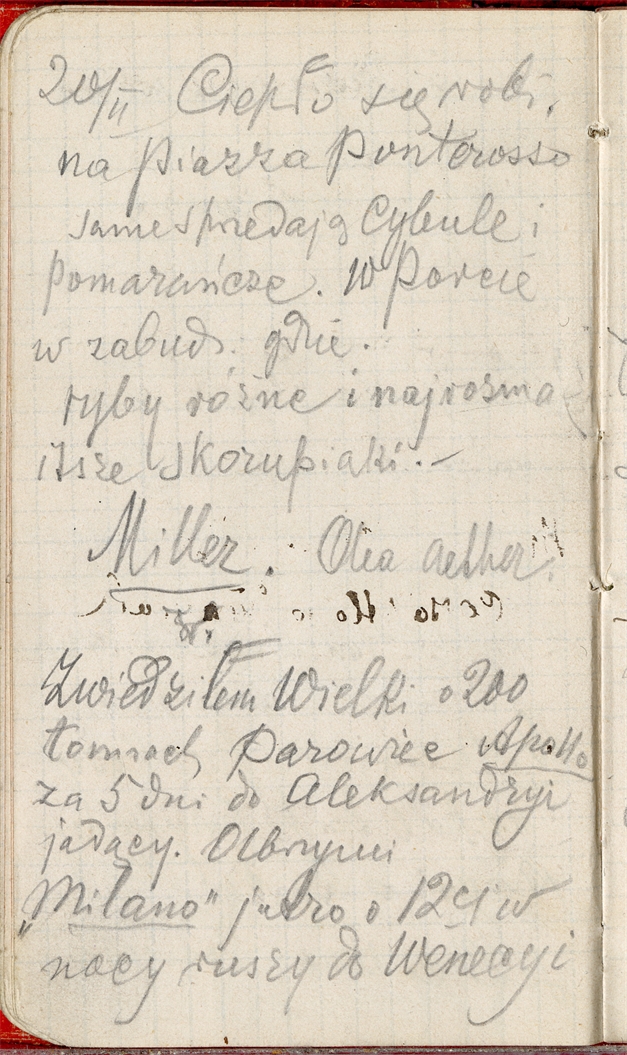 20/II Ciepło się robi,
na Piazza Ponterosso
same sprzedają Cybule i
Pomarańcze. W Porcie
w zabud. gdzie.
ryby różne i najrozma
itsze Skorupiaki.—
Miller. Olea aether.
Zwiedziłem Wielki o 200
tonnach Parowiec Apollo
za 5 dni do Aleksandryi
jadący. Olbrzymi
„Milano" jutro o 12ej w
nocy ruszy do Wenecyi